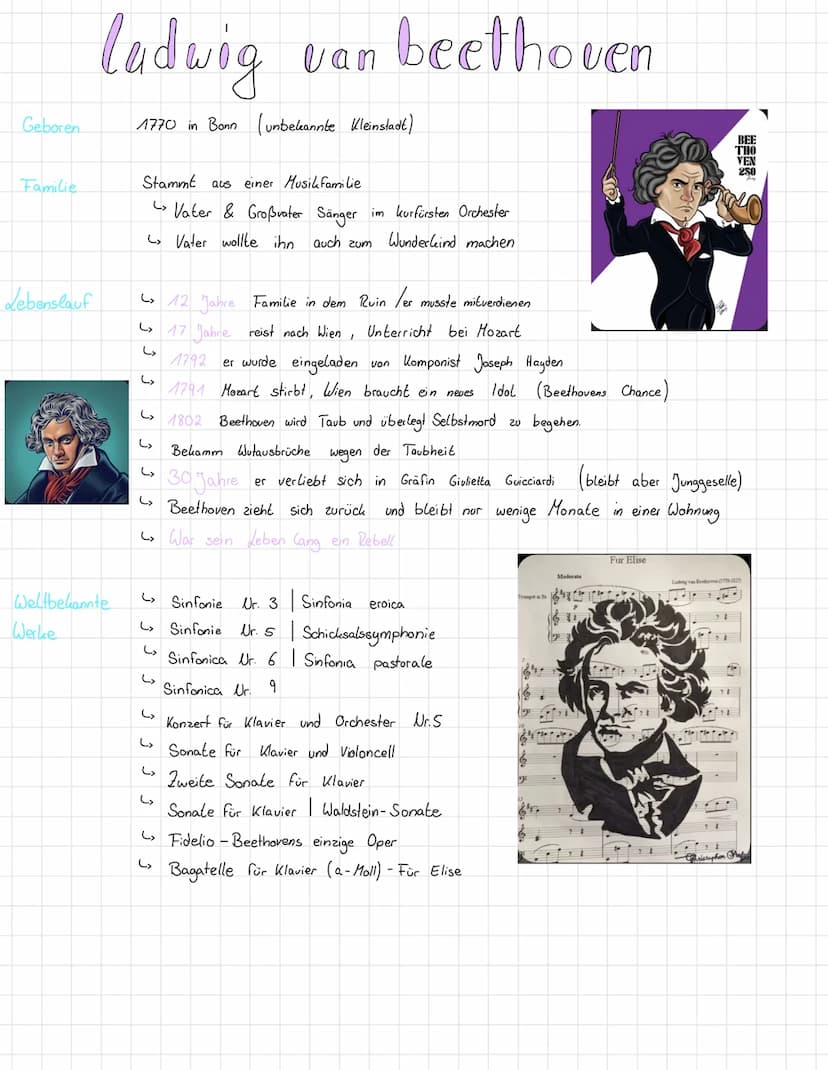 Ludwig van beethoven
Geboren 1770 in Bonn (unbekannte Kleinstadt)
BEE
THO
VEN
250
Familie Stammt aus einer Musikfamilie
↳ Vater & Großvater Sänger im kurfürsten Orchester
↳ Vater wollte ihn auch zum Wunderkind machen
Lebenslauf ↳ 12 Jahre Familie in dem Ruin / er musste mitverdienen
↳ 17 Jahre reist nach Wien, Unterricht bei Mozart
↳ 1792 er wurde eingeladen von Komponist Joseph Hayden
↳ 1791 Mozart stirbt, Wien braucht ein neues Idol (Beethovens Chance)
↳ 1802 Beethoven wird Taub und überlegt Selbstmord zu begehen.
↳ Bekamm Wutausbrüche wegen der Taubheit
↳ 30 Jahre er verliebt sich in Gräfin Giulietta Guicciardi (bleibt aber Junggeselle)
↳ Beethoven zieht sich zurück und bleibt nur wenige Monate in einer Wohnung
↳ War sein Leben lang ein Rebell
Fur Elise
Moderato
Ludwig van Beethoven (1770-1827)
Trumpet in Bb
Weltbekannte
Werke
↳ Sinfonie Nr. 3 | Sinfonia eroica
↳ Sinfonie Nr. 5 | Schicksalssymphonie
↳ Sinfonica Nr. 6 | Sinfonia pastorale
↳ Sinfonica Nr. 9
↳ Konzert für Klavier und Orchester Nr.5
↳ Sonate für Klavier und Violoncell
↳ Zweite Sonate für Klavier
↳ Sonate für Klavier | Waldstein-Sonate
↳ Fidelio – Beethovens einzige Oper
↳ Bagatelle für Klavier (a-Moll) - Für Elise